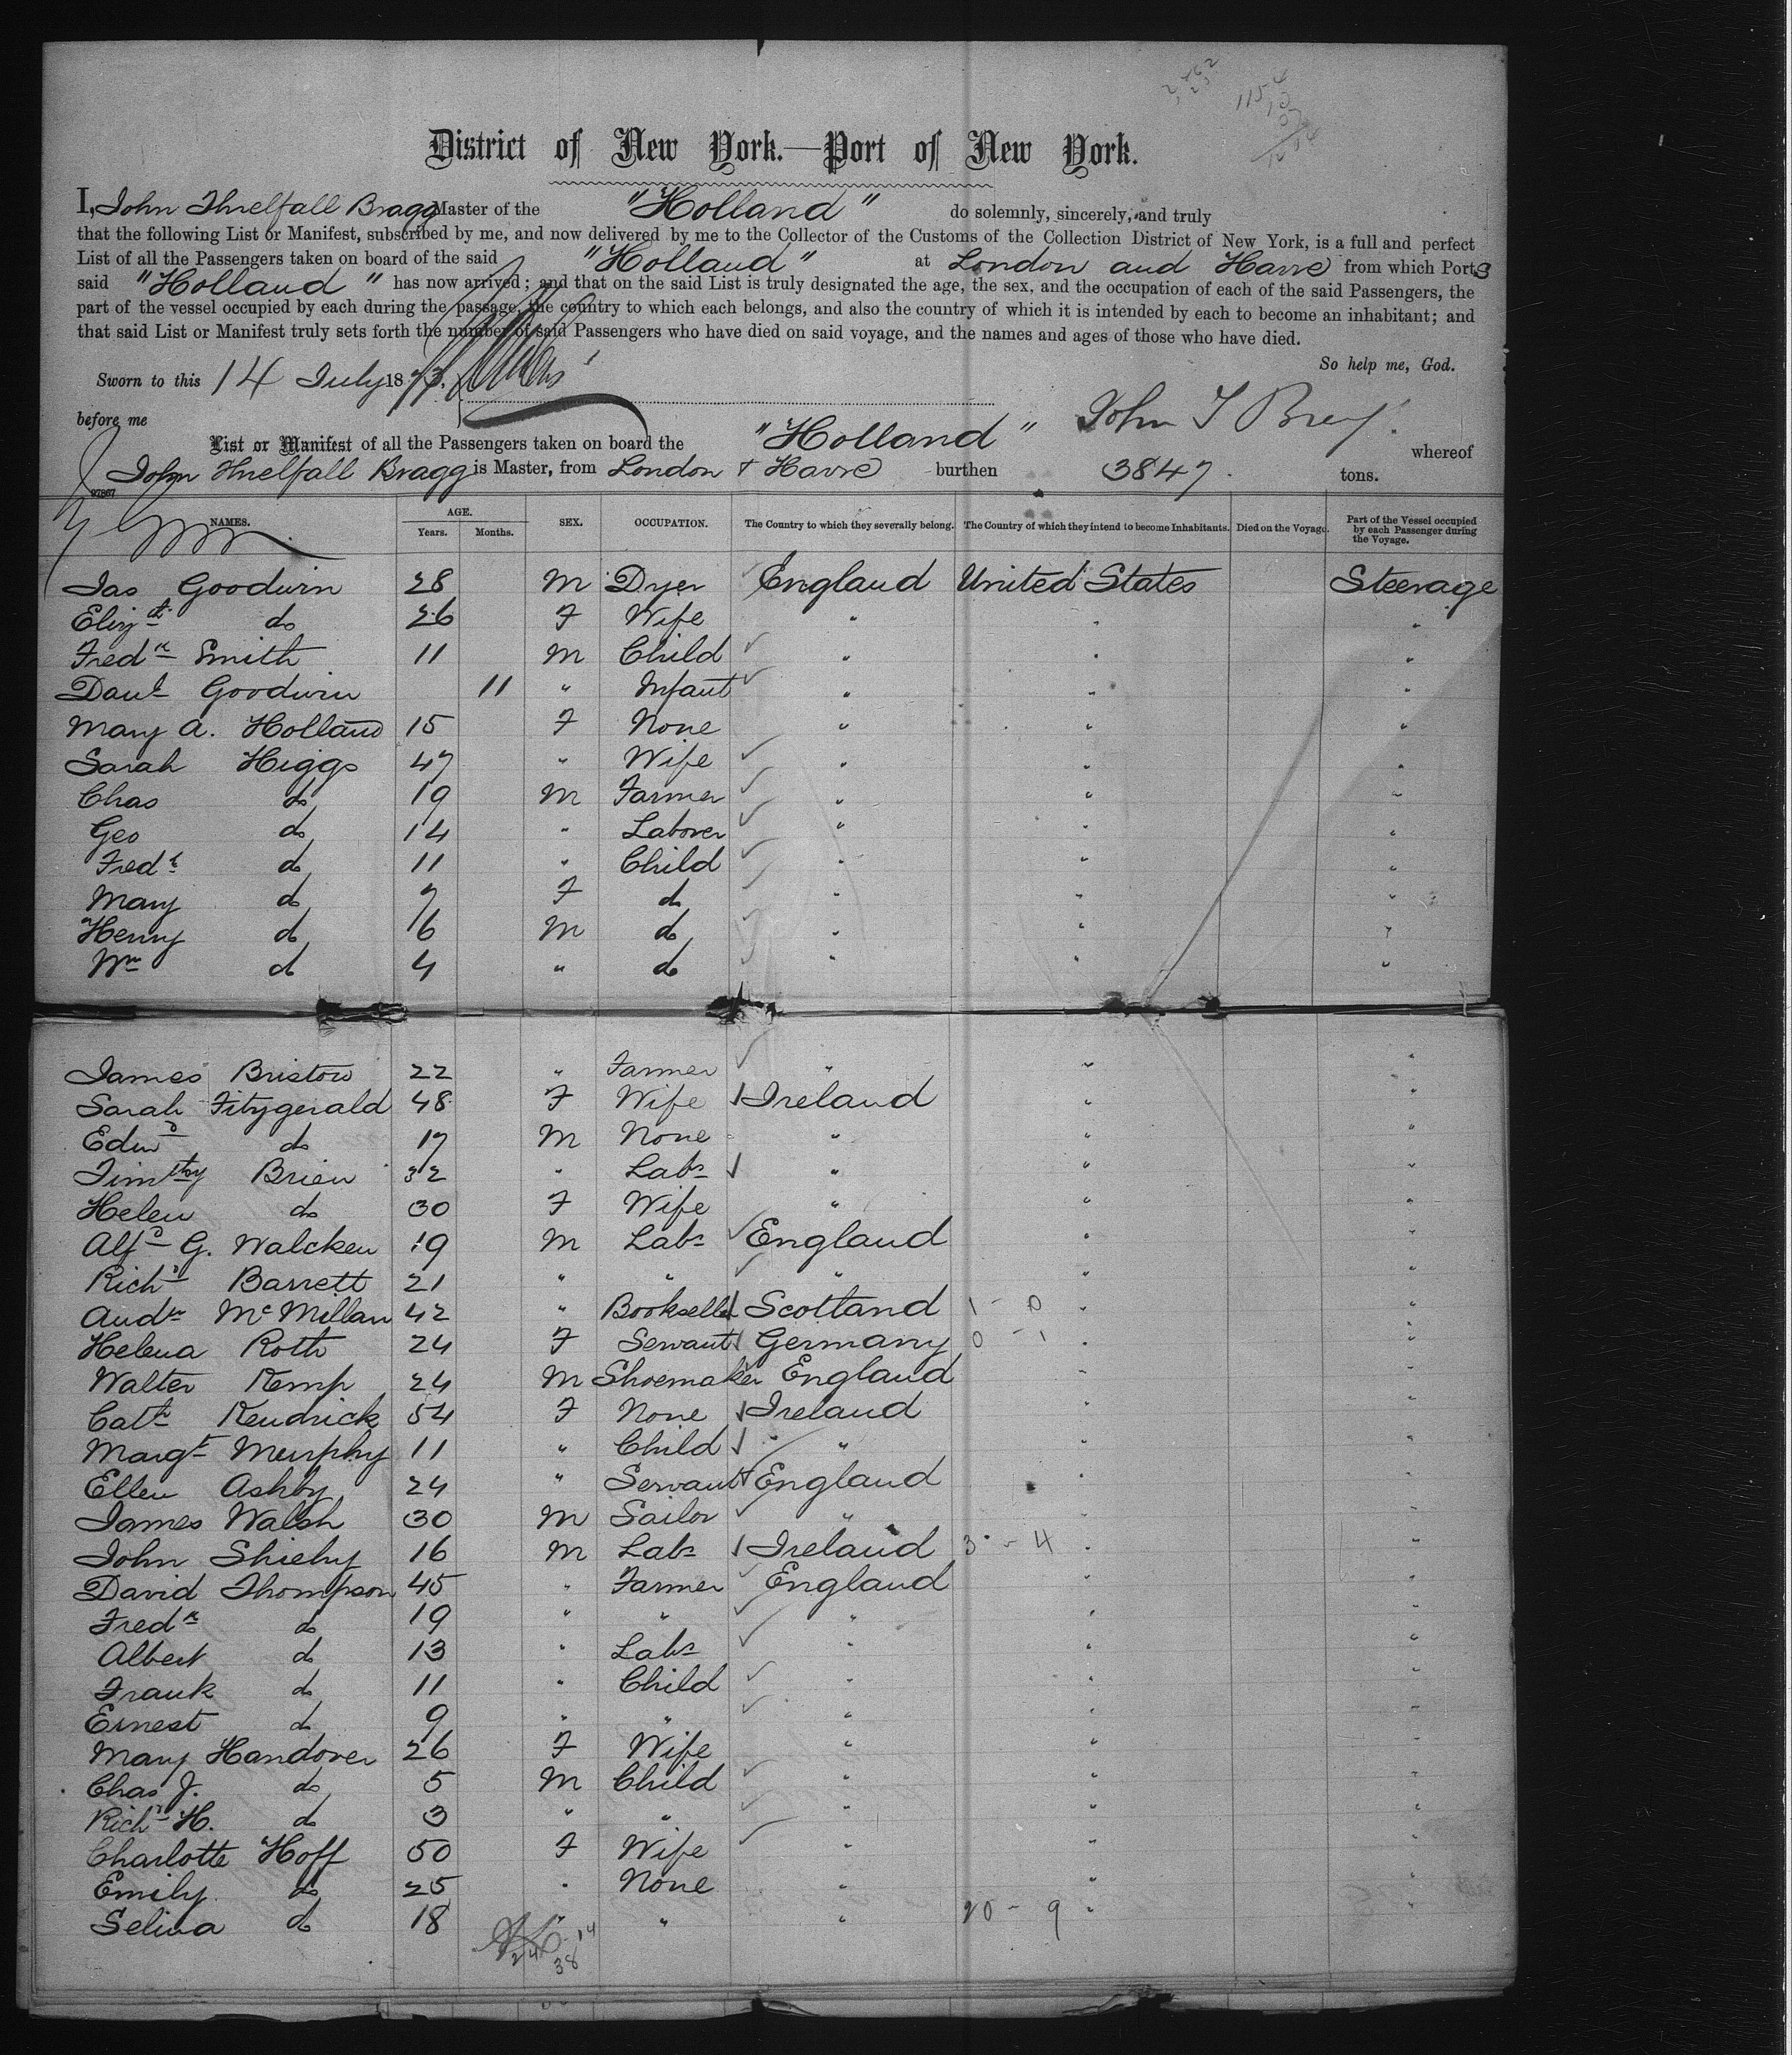 District of New York.—Port of New York.
I, John Threlfall Bragg Master of the "Holland" do solemnly, sincerely, and truly
that the following List or Manifest, subscribed by me, and now delivered by me to the Collector of the Customs of the Collection District of New York, is a full and perfect
List of all the Passengers taken on board of the said "Holland" at London and Havre from which Ports
said "Holland" has now arrived; and that on the said List is truly designated the age, the sex, and the occupation of each of the said Passengers, the
part of the vessel occupied by each during the passage, the country to which each belongs, and also the country of which it is intended by each to become an inhabitant; and
that said List or Manifest truly sets forth the number of said Passengers who have died on said voyage, and the names and ages of those who have died.
So help me, God.
Sworn to this 14 July 1873.
before me
John T Bragg
List or Manifest of all the Passengers taken on board the "Holland" whereof
John Threlfall Bragg is Master, from London + Havre burthen 3847 tons.
97867
NAMES. AGE. SEX. OCCUPATION. The Country to which they severally belong. The Country of which they intend to become Inhabitants. Died on the Voyage. Part of the Vessel occupied by each Passenger during the Voyage.
Years. Months.
Jas Goodwin 28 M Dyer England United States Steerage
Elizth do 26 F Wife " " "
Fredk Smith 11 M Child " " "
Danl Goodwin 11 " Infant " " "
Mary A. Holland 15 F None " " "
Sarah Higgs 47 " Wife " " "
Chas do 19 M Farmer " " "
Geo do 14 " Laborer " " "
Fredk do 11 " Child " " "
Mary do 7 F do " " "
Henry do 6 M do " " "
Wm do 4 " do " " "
James Bristow 22 " Farmer " " "
Sarah Fitzgerald 48 F Wife Ireland " "
Edwd do 17 M None " " "
Timthy Brien 32 " Labr " " "
Helen do 30 F Wife " " "
Alfd G. Walcken 19 M Labr England " "
Richd Barrett 21 " " " " "
Andw McMillan 42 " Bookseller Scotland 1 - 0 " "
Helena Roth 24 F Servant Germany 0 - 1 " "
Walter Kemp 24 M Shoemaker England " "
Cath Kendrick 54 F None Ireland " "
Margt Murphy 11 " Child " " "
Ellen Ashby 24 " Servant England " "
James Walsh 30 M Sailor " " "
John Shiehy 16 M Labr Ireland 3 - 4 " "
David Thompson 45 " Farmer England " "
Fredk do 19 " " " " "
Albert do 13 " Labr " " "
Frank do 11 " Child " " "
Ernest do 9 " " " " "
Mary Handover 26 F Wife " " "
Chas J. do 5 M Child " " "
Richd H. do 3 " " " " "
Charlotte Hoff 50 F Wife " " "
Emily do 25 " None " " "
Selina do 18 " " " 20 - 9 " "
14
24 38